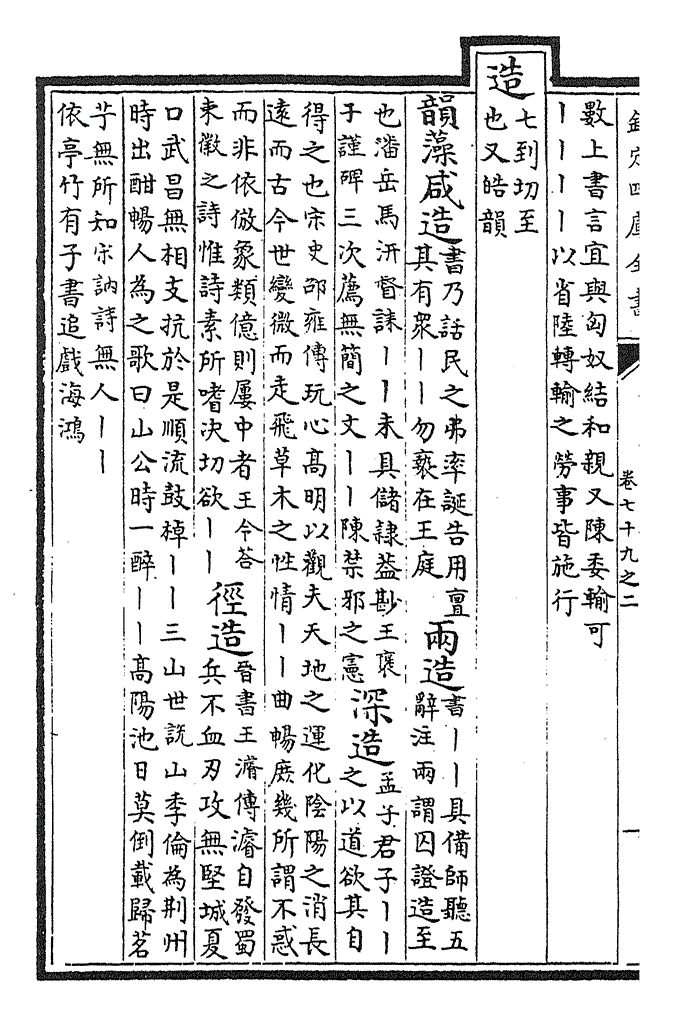 欽定四庫全書
卷七十九之二
一
數上書言宜與匈奴結和親又陳委輸可
丨丨丨丨以省陸轉輸之勞事皆施行
造 七到切至
也又皓韻
韻藻咸造 書乃話民之弗率誕告用亶
其有衆丨丨勿褻在王庭 兩造 書丨丨具備師聽五
辭注兩謂囚證造至
也潘岳馬汧督誄丨丨未具儲隸葢尠王褒
子謹碑三次薦無簡之文丨丨陳禁邪之憲 深造 孟子君子丨丨
之以道欲其自
得之也宋史邵雍傳玩心高明以觀夫天地之運化陰陽之消長
遠而古今世變微而走飛草木之性情丨丨曲暢庶幾所謂不惑
而非依倣象類億則屢中者王令答
束徽之詩惟詩素所嗜决切欲丨丨 徑造 晉書王濬傳濬自發蜀
兵不血刃攻無堅城夏
口武昌無相支抗於是順流鼓棹丨丨三山世説山季倫為荆州
時出酣暢人為之歌曰山公時一醉丨丨高陽池日莫倒載歸茗
艼無所知宋訥詩無人丨丨
依亭竹有子書追戲海鴻